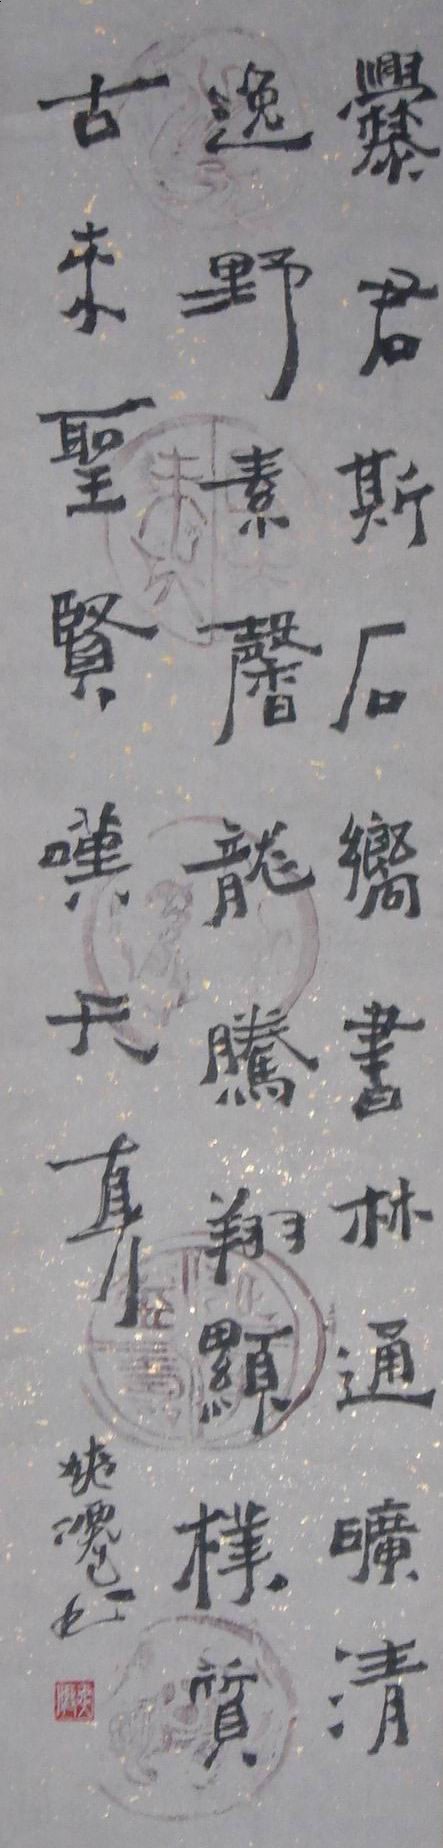 爨君斯石嚮書林通曠清
逸野素馨龍騰翔顯樸質
古來聖賢嘆天真